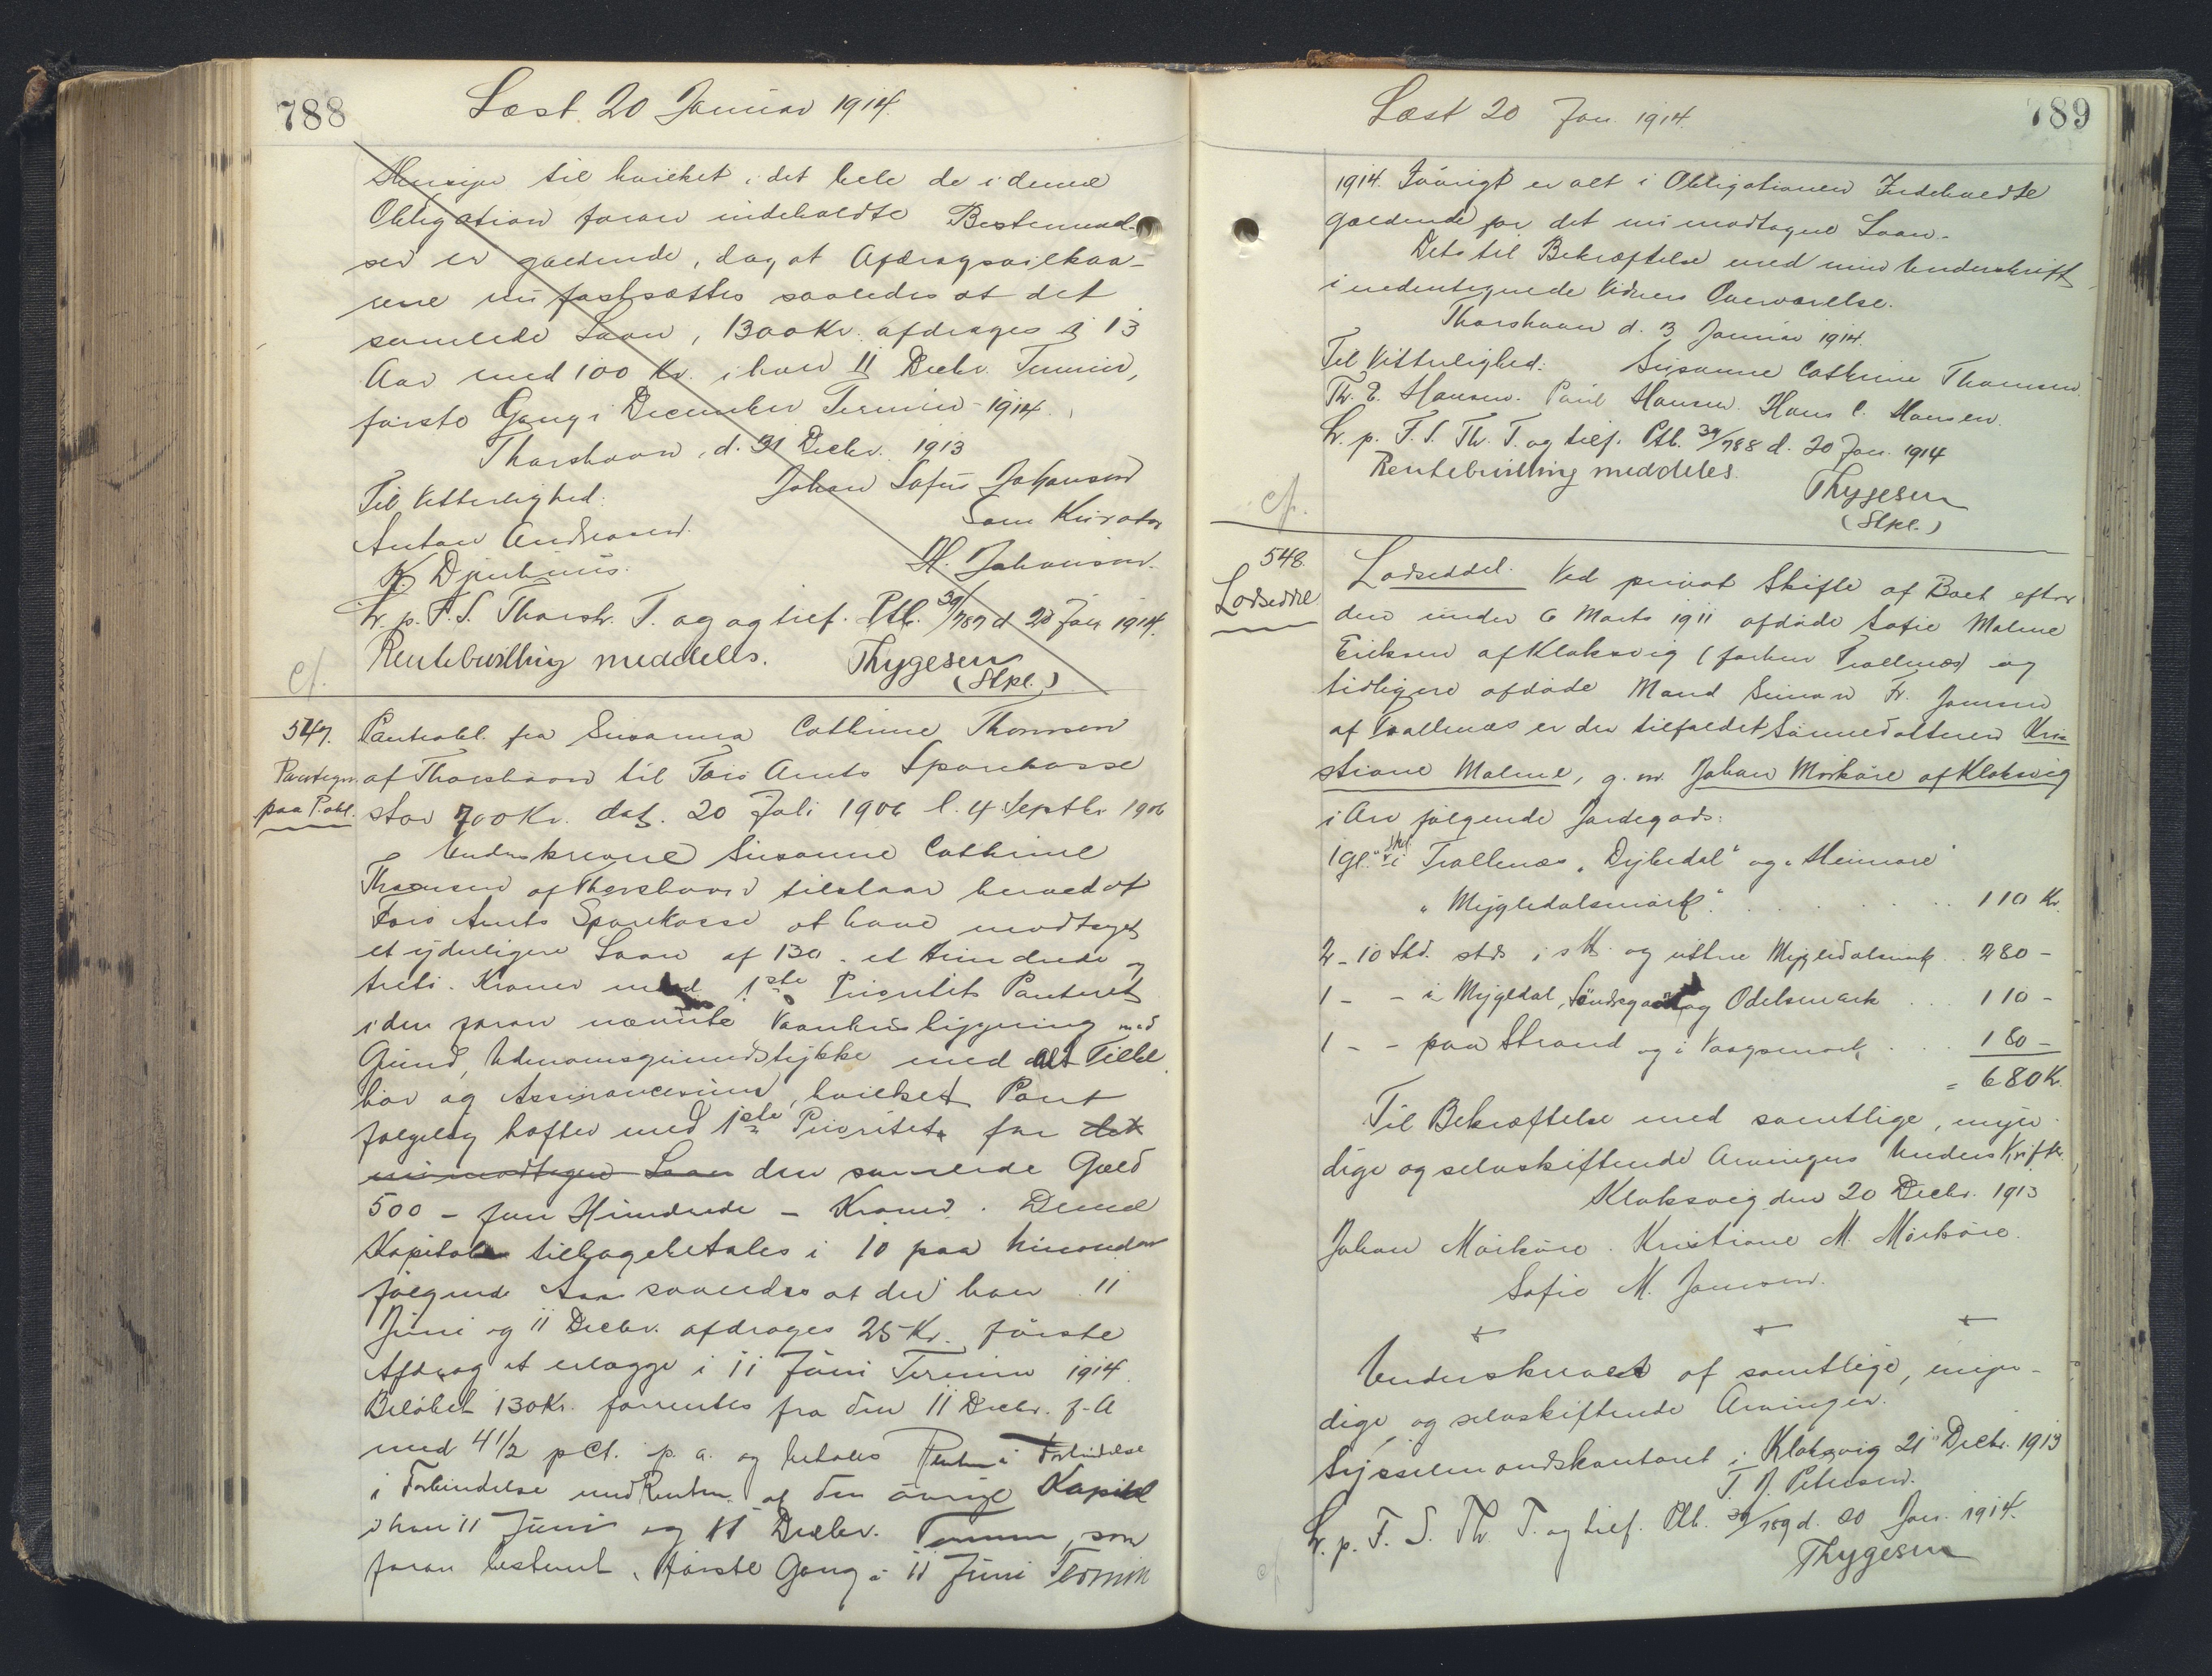 788
Læst 20 Januar 1914.
Hensyn til hvilket i det hele de i denne
Obligation foran indeholdte Bestemmel-
ser er gældende, dog at Afdragsvilkaa-
rene nu fastsættes saaledes at det
samlede Laan, 1300 Kr. afdrages i 13
Aar med 100 Kr. i hver 11 Decbr. Termin,
første Gang i December Termin 1914.
Thorshavn, d. 31 Decbr. 1913
Til Vitterlighed: Johan Sofus Johansen
Anton Andreasen. Som Kurator
K. Djurhuus. H. Johansen.
Lr. p. F. S. Thorsh. T. og og tilf. Ptb. 39/787 d. 20 Jan 1914.
Rentebevilling meddeles. Thygesen
cf. (Stpl.)
547. Panteobl. fra Susanna Cathrine Thomsen
Paategn. af Thorshavn til Færø Amts Sparekasse
paa P.obl. stor 700 Kr. dat. 20 Juli 1906 l. 4 Septbr 1906
Underskrevne Susanne Cathrine
Thomsen af Thorshavn tilstaar herved af
Færø Amts Sparekasse at have modtaget
et yderligere Laan af 130 - et Hundrede og
treti - Kroner med 1ste Prioritets Panteret
i den foran nævnte Vaanhusbygning med
Grund, Udenomsgrundstykke med alt Tilbe
hør og Assurancesum, hvilket Pant
følgelig hæfter med 1ste Prioritet for det
nu modtagne Laan den samlede Gæld
500 - fem Hundrede - Kroner. Denne
Kapital tilbagebetales i 10 paa hinanden
følgende Aar saaledes at der hver 11
Juni og 11 Decbr. afdrages 25 Kr. første
Afdrag at erlægge i 11 Juni Termin 1914.
Beløbet 130 Kr. forrentes fra den 11 Decbr. f. A
med 4 1/2 pCt. p. a. og betales Renten i Forbindelse
i Forbindelse med Renten af den øvrige Kapital
i hver 11 Juni og 11 Decbr. Termin, som
foran bestemt, første Gang i 11 Juni Termin
789
Læst 20 Jan. 1914.
1914. Iøvrigt er alt i Obligationen Indeholdte
gældende for det nu modtagne Laan.
Dets til Bekræftelse med min Underskrift
i undertegnede Vidners Overværelse.
Thorshavn d. 3 Januar 1914.
Til Vitterlighed: Susanne Cathrine Thomsen.
Th. E. Hansen. Poul Hansen. Hans C. Hansen.
Lr. p. F. S. Th. T. og tilf. Ptb. 39/788 d. 20 Jan. 1914
Rentebevilling meddeles.
Thygesen
cf. (Stpl.)
548. Lodseddel. Ved privat Skifte af Boet efter
Lodseddel den under 6 Marts 1911 afdøde Sofie Malene
Eriksen af Klaksvig (forhen Trøllenæs) og
tidligere afdøde Mand Simon Fr. Joensen
af Trøllenæs er der tilfaldet Sønnedatteren Kri
stiane Malene, g. m. Johan Mørkøre af Klaksvig
i Arv følgende Jordegods:
1 Gl. " Skd. i Trøllenæs "Dyhedal" og "Heimare"
"Mygledalsmark" . . . 110 Kr.
2 - 10 Skd. stds i sM. og uttne Mygledalsmark . . 280 -
1 - - i Mygledal, Søndregaard og Odelsmark . . . 110 -
1 - - paa Strand og i Vaagsmark . . . 180 -
= 680 Kr.
Til Bekræftelse med samtlige, myn-
dige og selvskiftende Arvingers Underskrifter.
Klaksvig den 20 Decbr. 1913
Johan Mørkøre. Kristiane M. Mørkøre.
Sofie M. Joensen.
Underskrevet af samtlige, myn-
dige og selvskiftende Arvinger.
Sysselmandskontoret i Klaksvig 21 Decbr. 1913
Petersen.
Lr. p. F. S. Th T. og tilf. Ptb. 39/789 d. 20 Jan. 1914.
cf. Thygesen